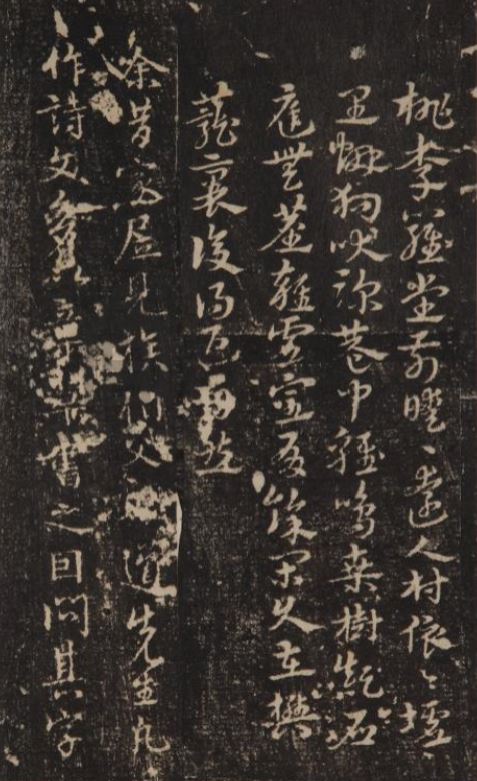 桃李羅堂前曖〻遠人村依〻墟
里烟狗吠深巷中雞鳴桑樹顛戶
庭無塵雜虛室有餘閑久在樊
籠裏復得返自然
余昔家居見族伯父道先生凡
作詩文書之因問其字